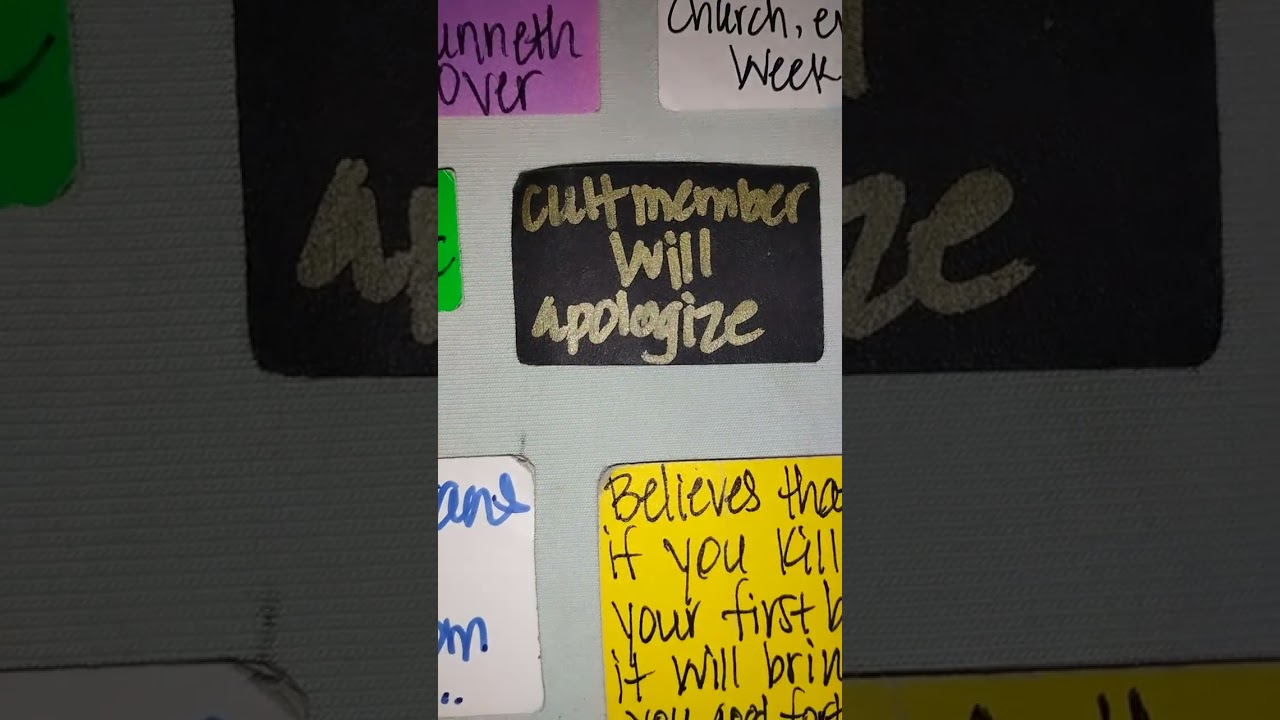 unneth
Over
Church, e
Week
cult member
will
apologize
ane
om.
Believes tha
if you kill
your first b
it will brin
you good fort